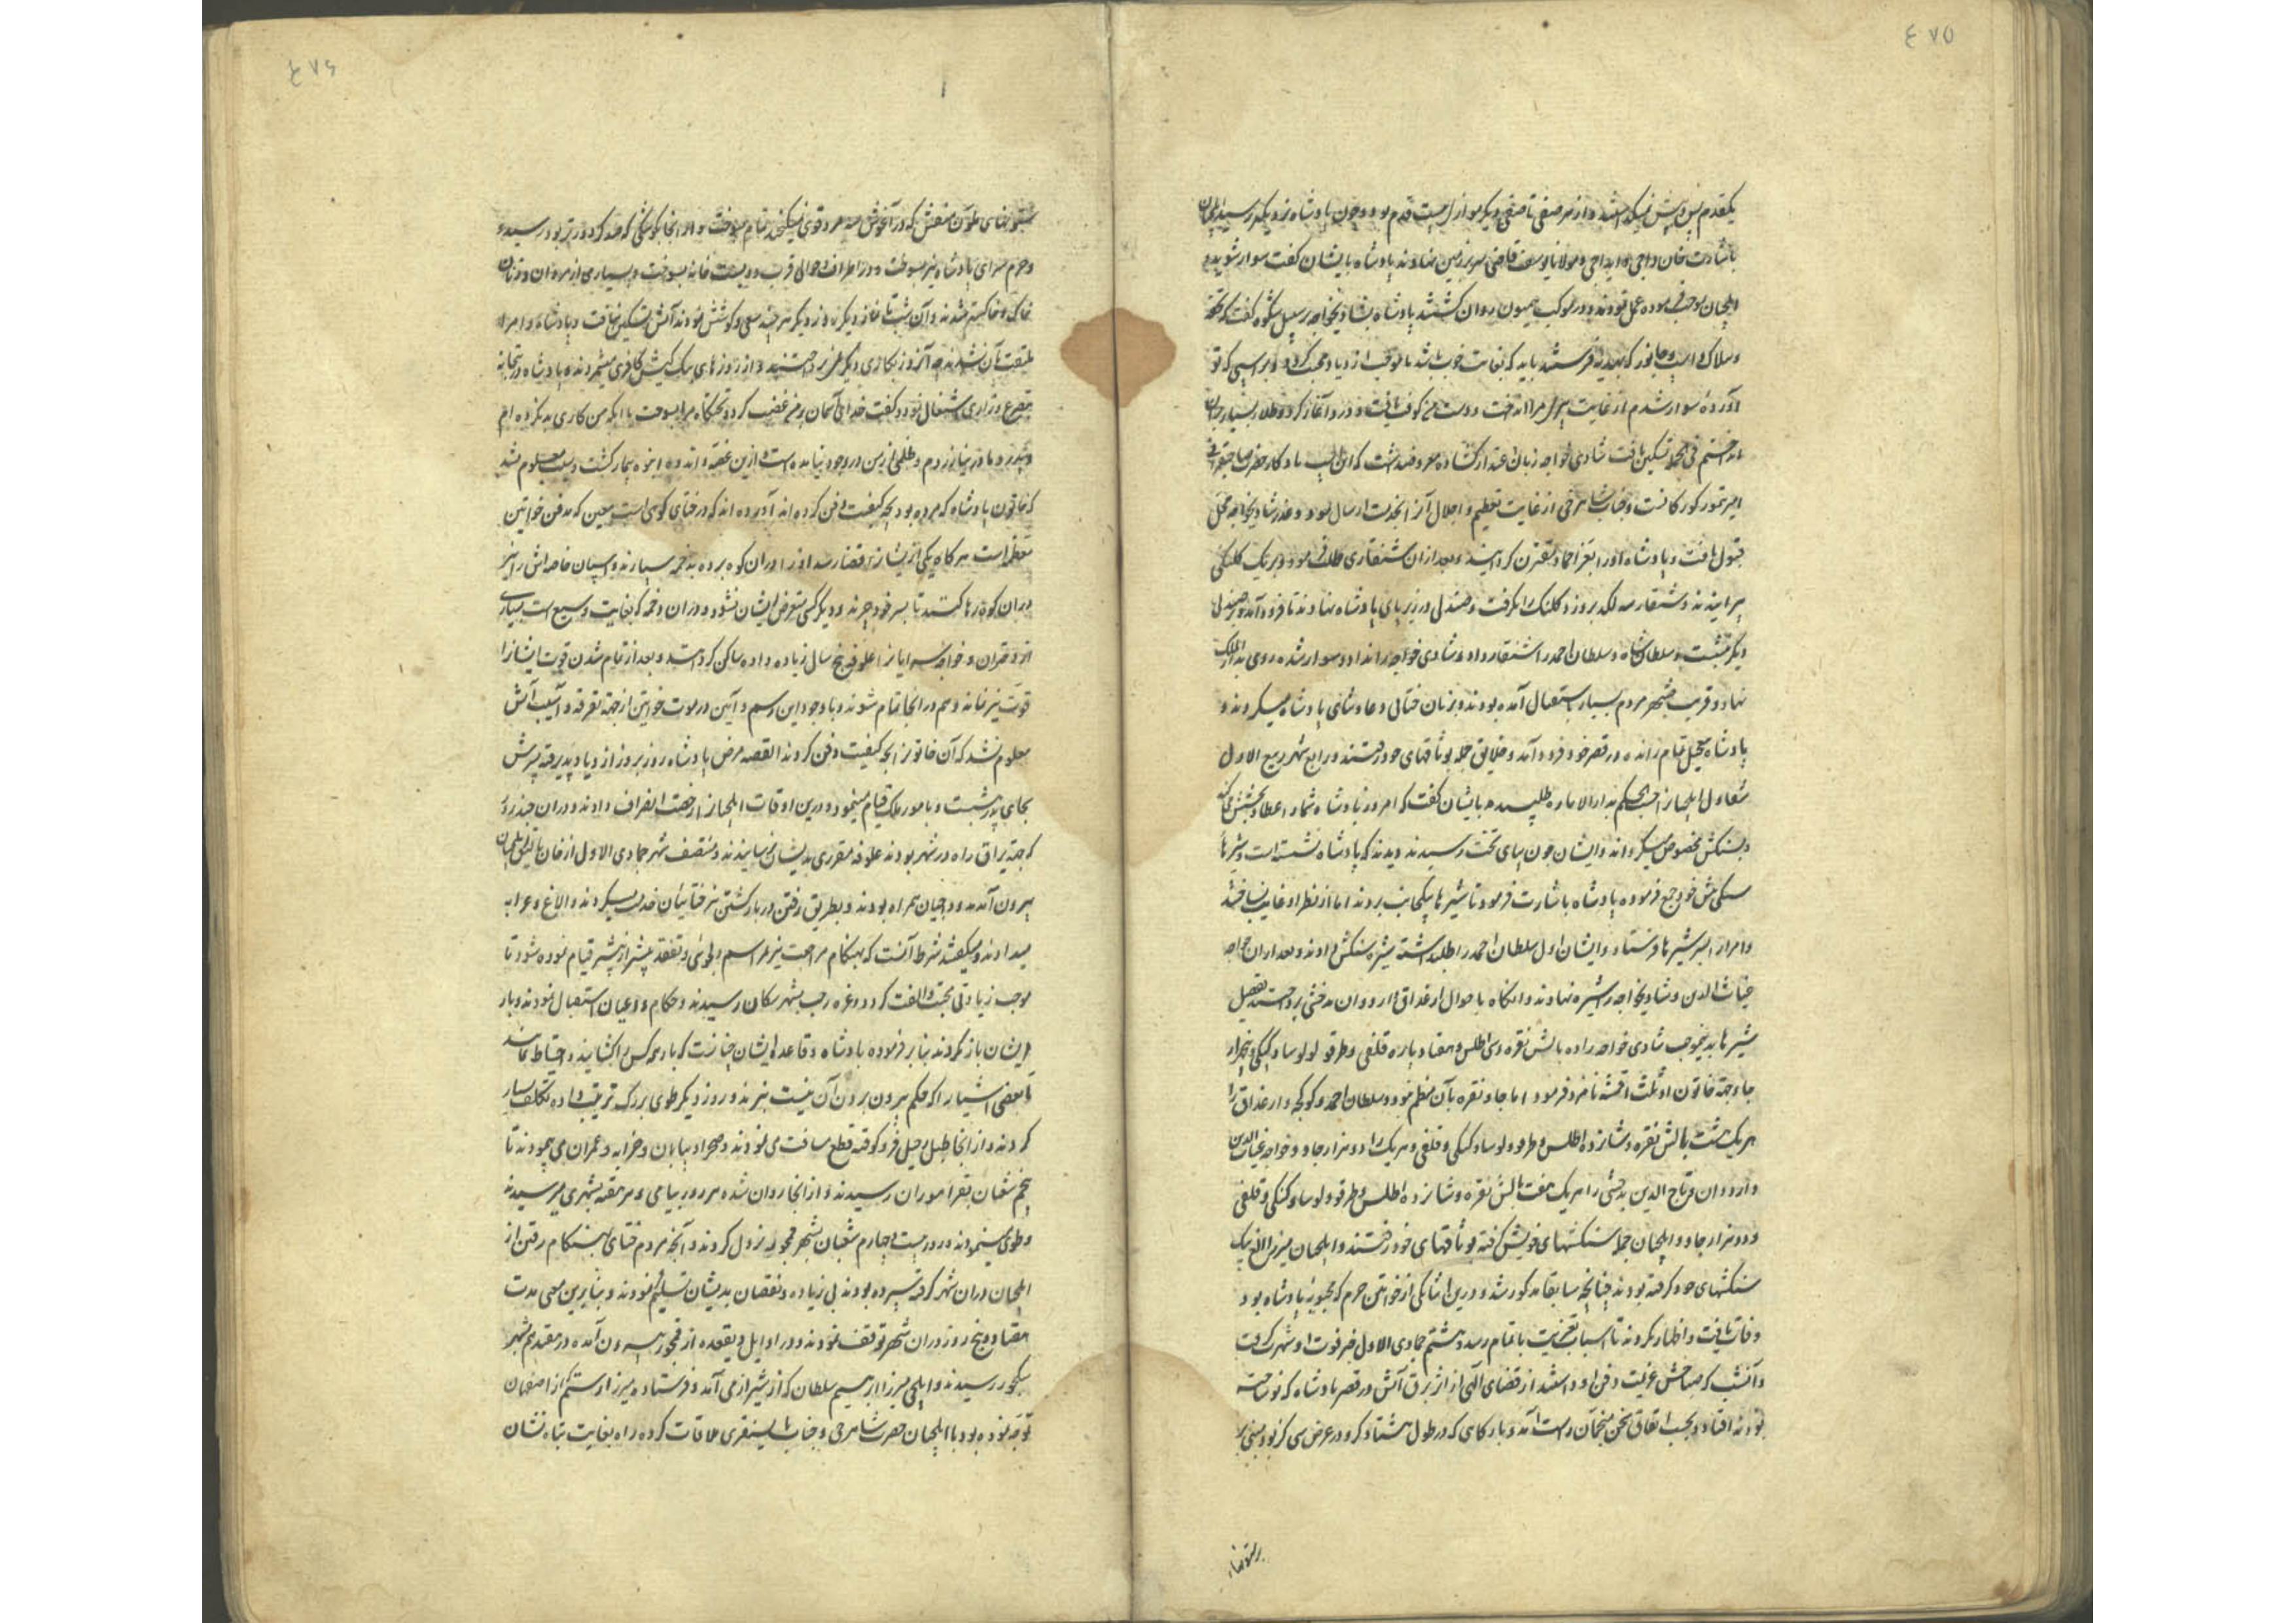 ۴۷۵
یکقدم پس و پیش نمیگذاشتند و از هر صفی تا صفی دیگر موازی بیست قدم بود و چون پادشاه نزدیک رسید ایلچیان
باشارت خان واجی و ایداجی و مولانا یوسف قاضی سر بر زمین نهادند پادشاه بایشان گفت سوار شوید و
ایلچیان بموجب فرموده عمل نمودند و در موکب همیون روان گشتند پادشاه بشادیخواجه بر سبیل شکوه گفت که تحفه
و بیلاک و اسپ و جانور که بهدیه فرستند باید که بغایت خوب باشد تا موجب ازدیاد محبت گردد و بر اسپی که تو
آورده سوار شدم از غایت پیری مرا انداخت و دست من کوفت یافت و درد آغاز کرد و طلا بسیار بران
انداختم فی الجمله تسکین یافت شادی خواجه زبان اعتذار گشاده معروضداشت که این اسپ یادگار حضرت صاحبقرانی
امیر تیمور کورکانست و جناب شاهرخی از غایت تعظیم و اجلال آنرا بخدمت ارسال نموده و عذر شادیخواجه محل
قبول یافت و پادشاه او را بعز احماد مقترن گردانید و بعد از آن شنقاری طلب فرموده بر یک کلنگی
پرانیدند و شنقار سه لگد بر وزد کلنک را گرفت و صندلی در زیر پای پادشاه نهادند تا فرود آمد و بر صندلی
دیگر نشست و سلطان شاه و سلطان احمد را شنقار داد و شادی خواجه را نداد و سوار شده روی بدار الملک
نهاد و قریب بشهر مردم بسیار باستقبال آمده بودند و بزبان ختائی دعا و ثنای پادشاه میکردند و
پادشاه بتجمل تمام رانده در قصر خود فرود آمد و خلایق جمله بوثاقهای خود رفتند و رابع شهر ربیع الاول
شغاول ایلچیانرا حسب الحکم بدار الاماره طلبیده بایشان گفت که امروز پادشاه شما را عطا و بخشش میکند
و بسنکش مخصوص میگرداند و ایشان چون بپای تخت رسیدند دیدند که پادشاه نشسته است و شیرها
سنکش پیش خود جمع فرموده پادشاه باشارت فرمود تا شیرها بیکجانب بردند اما از نظر او غایب نساختند
و امرا را بسر شیرها فرستاد و ایشان اول سلطان احمد را طلبداشته شیره سنکش دادند و بعد از ان خواجه
غیاث الدین و شادیخواجه را شیره نهادند و آنگاه باحوال ارغداق و اردوان بدخشی پرداختند تفصیل
شیرها بدینموجب شادی خواجه را ده بالش نقره و سی اطلس و هفتاد پاره قلغی و طرقو لو لو سا و کپکی و پنجهزار
جاو جهة خاتون او ثلث اقمشه نامزد فرمود اما جاو نقره بآن منظم نبود و سلطان احمد و کوکجه و ارغداق را
هر یک هشت بالش نقره و شانزده اطلس و طرقو و لوسا و کپکی و قلغی و هر یک را دو هزار جاو و خواجه غیاث الدین
و اردوان و تاج الدین بدخشی را هر یک هفت بالش نقره و شانزده اطلس و طرقو و لوسا و کپکی و قلغی
و دو هزار جاو و ایلچیان جمله سنکشهای خویش گرفته بوثاقهای خود رفتند و ایلچیان میرزا الغ بیک
سنکشهای خود گرفته بودند چنانچه سابقا مذکور شد و درین اثنا یکی از خواتین حرم که محبوبهٔ پادشاه بود
وفات یافت و اظهار نکردند تا اسباب تعزیت باتمام رسد و هشتم جمادی الاول خبر فوت او شهرت گرفت
و آنشب که صباحش عزیمت دفن او داشتند از قضای الهی از اثر برق آتش در قصر پادشاه که نو ساخته
بودند افتاد و بحسب اتفاق سخن منجمان راست آمد و بارگاهی که در طول هشتاد گز و در عرض سی گز بود مبنی بر
بستونهاء
۴۷۶
بستونهای ملون منقش که در آغوش سه مرد قوی نمیگنجد تمام بسوخت و از انجا بکوشکی که صد گز دورتر بود رسیده
و حرم سرای پادشاه نیز بسوخت و در اطراف و حوالی قریب دویست خانه بسوخت و بسیاری از مردان و زنان
خاک و خاکستر شدند و آن شب تا نماز دیگر روز دیگر هر چند سعی و کوشش نمودند آتش تسکین نیافت و پادشاه و امرا
ملتفت بآن نشدند چه آنروز بکاری دیگر نمی پرداختند و از روزهای نیک کیش کافری میشمردند و پادشاه در بتخانه
بتضرع و زاری اشتغال نمود و گفت خدای آسمان بر من غضب کرد و تختگاه مرا بسوخت با آنکه من کاری بد نکرده ام
و پدر و مادر نیازردم و ظلمی از من در وجود نیامده است و ازین غصه و اندوه انبوه بیمار گشت و نیک معلوم نشد
که خاتون پادشاه که مرده بود بچه کیفیت دفن کرده اند آورده اند که در ختای کوهی است معین که مدفن خواتین
معظم است هر گاه یکی از ایشانرا قضا رسد او را بدان کوه برده بدخمه سپارند و اسپان خاصه اش را نیز
دران کوه رها کنند تا بسر خود چرند و دیگر کسی متعرض ایشان نشود و دران دخمه که بغایت وسیع است بسیاری
از دختران و خواجه سرایانرا علوفه پنج سال زیاده داده ساکن گردانند و بعد از تمام شدن قوت ایشانرا
قوت نیز نماند و هم در انجا تمام شوند و با وجود این رسم و آیین در موت خواتین از جهة تفرقه و آسیب آتش
معلوم نشد که آن خاتونرا بچه کیفیت دفن کردند القصه مرض پادشاه روز بروز ازدیاد پذیرفته پسرش
بجای پدر نشست و بامور ملک قیام مینمود و درین اوقات ایلچیانرا رخصت انصراف دادند و دران چند روز
که جهة یراق راه در شهر بودند علوفه مقرری بدیشان نرسانیدند و منتصف شهر جمادی الاول از خان بالیق ایلچیان
بیرون آمدند و داجیان همراه بودند و بطریق رفتن در بازگشتن نیز ختائیان خدمت میکردند و الاغ و عرابه
میدادند و میگفتند شرط آنست که بهنگام مراجعت نیز مراسم دلجوئی و تفقد بیشتر از پیشتر قیام نموده شود تا
موجب زیادتی محبت و الفت گردد و غره رجب بشهر سکان رسیدند و حکام و اعیان استقبال نمودند و بار
ایشان باز نکردند بنابر فرموده پادشاه و قاعده ایشان چنانست که بار همه کس را گشایند و احتیاط نمایند
تا بعضی اشیا را که حکم بیرون بردن آن نیست نبرند و روز دیگر طوی بزرک ترتیب داده تکلف بسیار
کردند و از انجا طبل رحیل فرو کوفته قطع مسافت می نمودند و صحرا و بیابان و خرابه و عمران می پیمودند تا
پنجم شعبان بقراموران رسیدند و از انجا روان شده هر روز بیامی و هر هفته بشهری میرسیدند
و طوی مینمودند و در بیست و چهارم شعبان بشهر قمجو به نزول کردند و آنچه مردم ختای بهنگام رفتن از
ایلچیان دران شهر گرفته سپرده بودند بی زیاده و نقصان بدیشان تسلیم نمودند و بنابرین معنی مدت
هفتاد و پنج روز دران شهر توقف نمودند و در اوایل ذیقعده از قمجو بیرون آمده در هفدهم بشهر
بکجور رسیدند و ایلچی میرزا ابرهیم سلطان که از شیراز می آمد و فرستاده میرزا رستم که از اصفهان
توجه نموده بود با ایلچیان حضرت شاهرخی و جناب بایسنقری ملاقات کرده راه بغایت تباه نشان